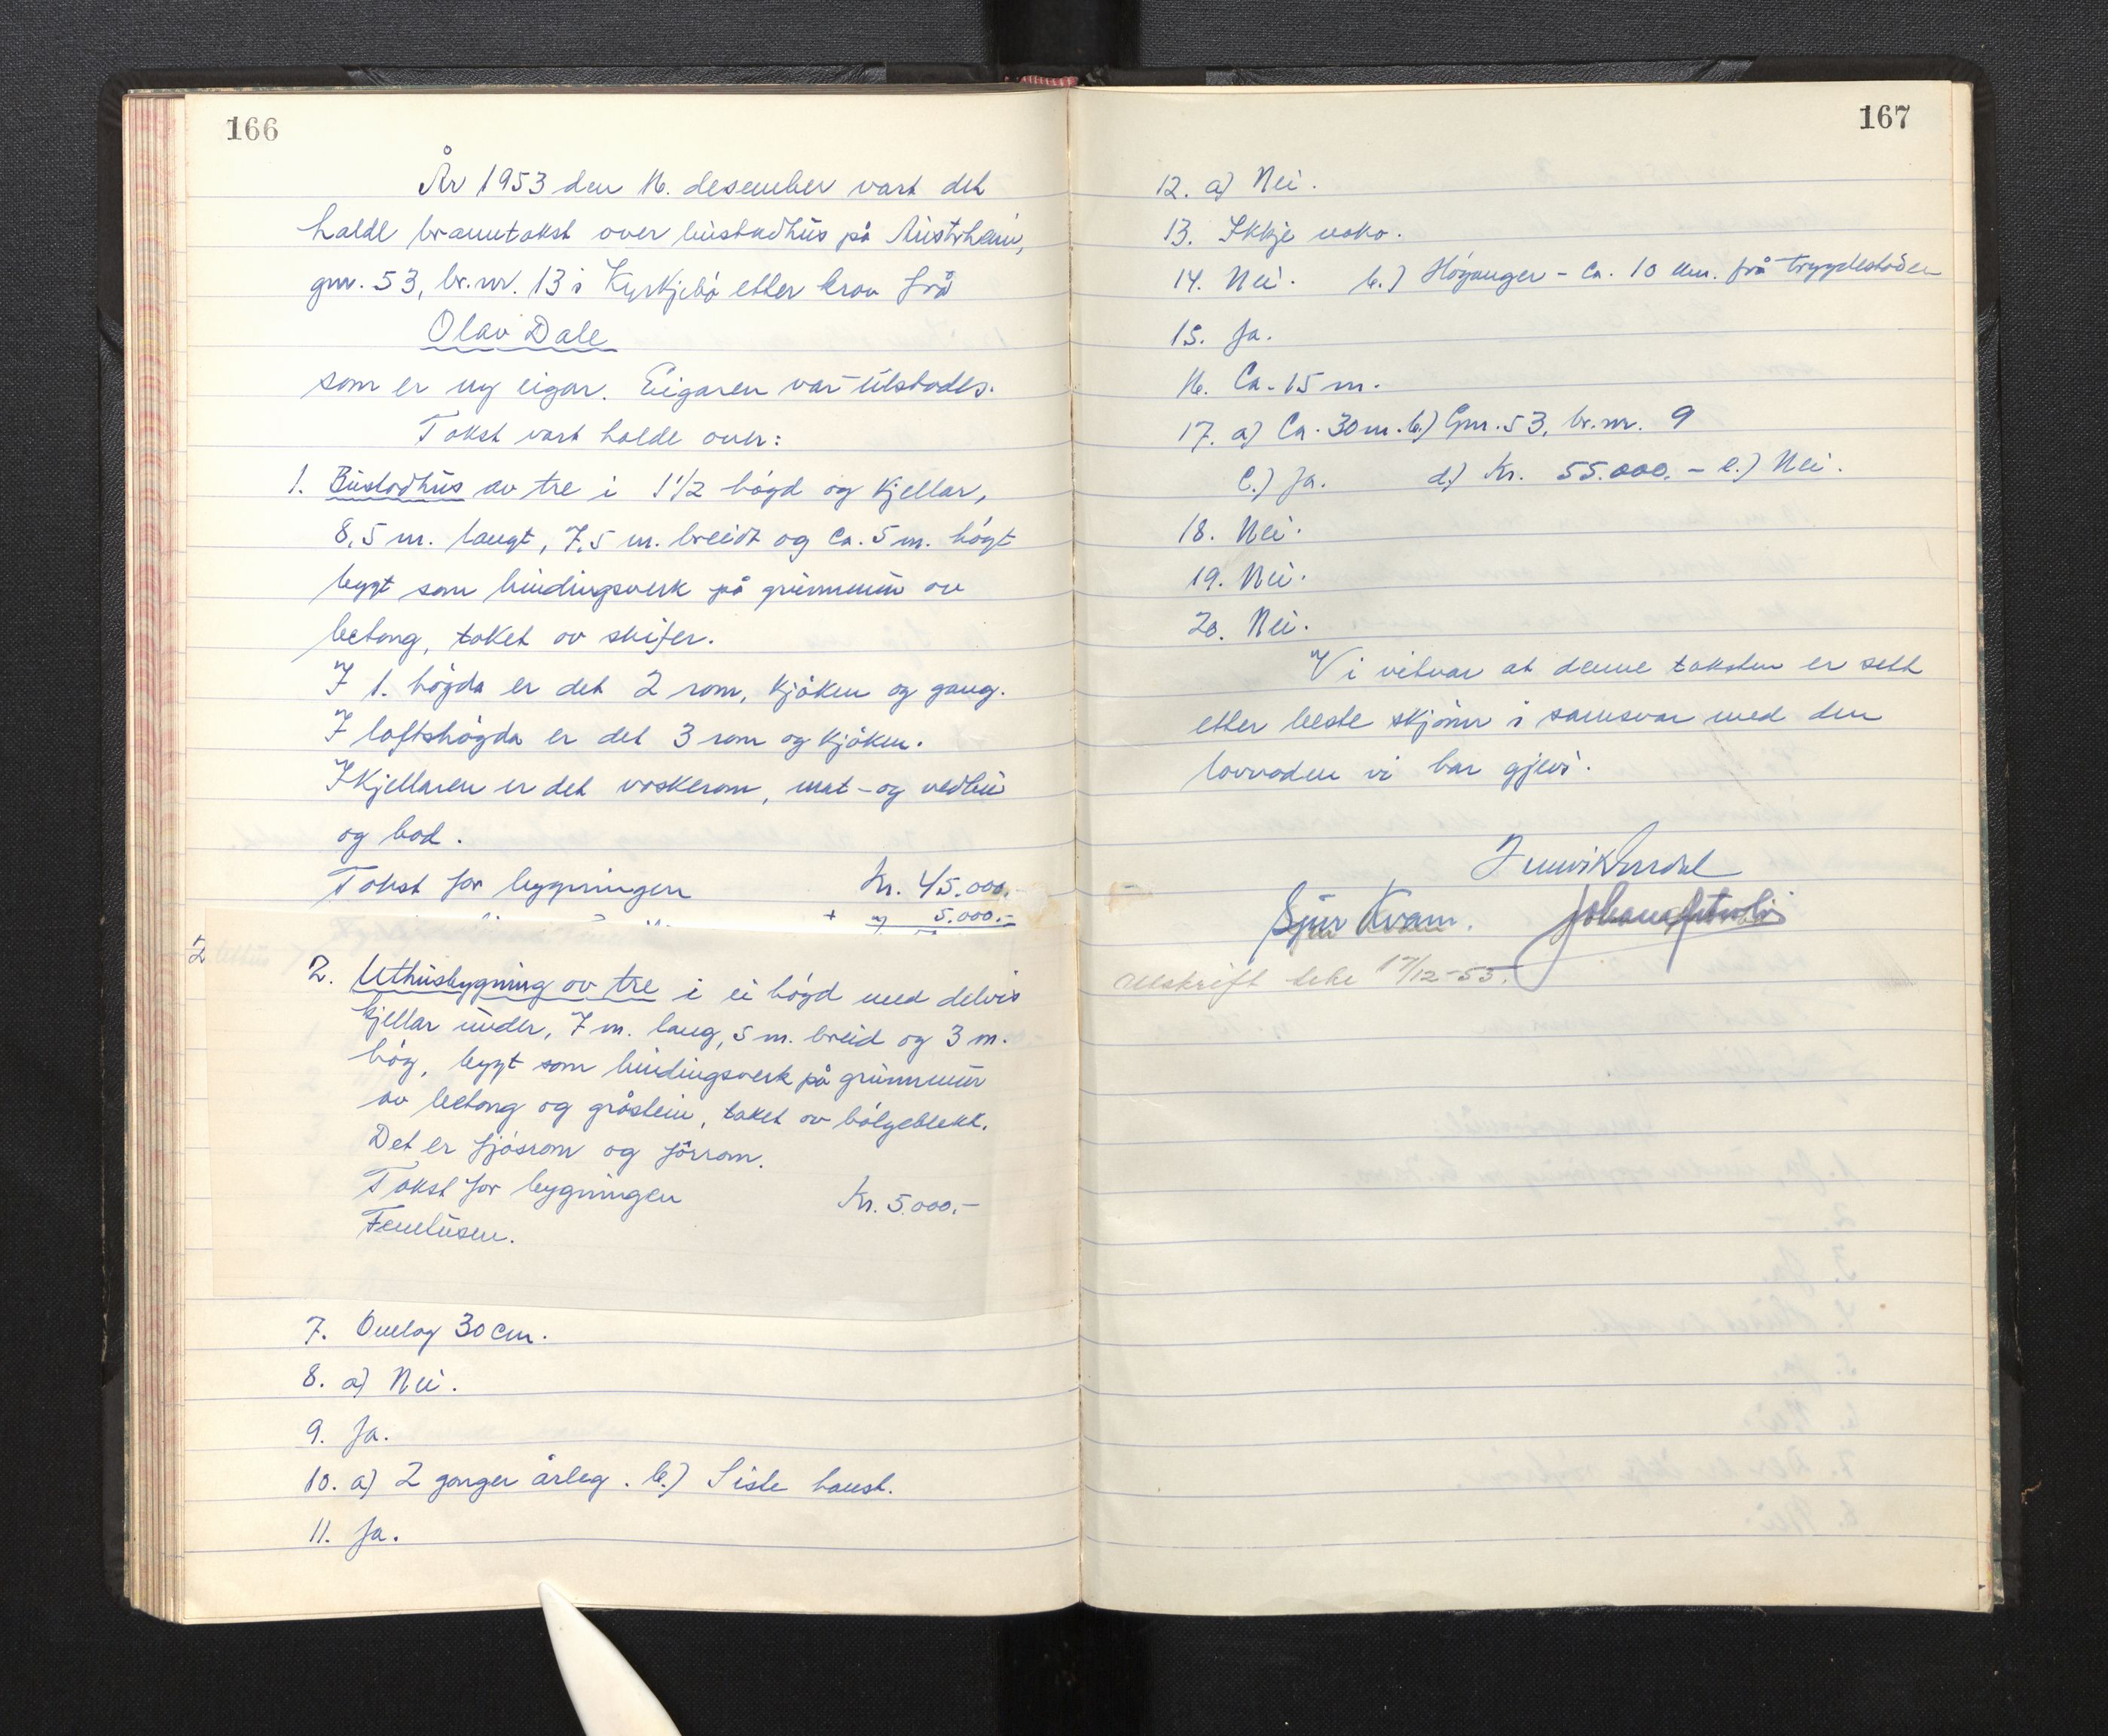 166
År 1953 den 16. desember vart det
halde branntakst over bustadhus på Austrheim,
gnr. 53, br.nr. 13 i Kyrkjebø etter krav frå
Olav Dale
som er ny eigar. Eigaren var tilstades.
Takst vart halde over:
1. Bustadhus av tre i 1 1/2 høgd og kjellar,
8,5 m. langt, 7,5 m. breidt og ca. 5 m. høgt
bygt som bindingsverk på grunnmur av
betong, taket av skifer.
I 1. høgda er det 2 rom, kjøken og gang.
I loftshøgda er det 3 rom og kjøken.
I Kjellaren er det vaskerom, mat- og vedbu
og bod.
Takst for bygningen Kr. 45.000.-
+ " 5.000.-
2
2. Uthusbygning av tre i ei høgd med delvis
kjellar under, 7 m. lang, 5 m. breid og 3 m.
høg, bygt som bindingsverk på grunnmur
av betong og gråstein, taket av bølgeblekk.
Det er fjøsrom og fôrrom.
Takst for bygningen Kr. 5.000.-
7. Omlag 30 cm.
8. a) Nei.
9. Ja.
10. a) 2 gonger årleg. b.) Siste haust.
11. Ja.
167
12. a) Nei.
13. Ikkje noko.
14. Nei. b.) Høyanger - ca. 10 km. frå trygdestaden
15. Ja.
16. Ca. 15 m.
17. a) Ca. 30 m. b.) Gnr. 53, br.nr. 9
c.) Ja. d.) Kr. 55.000.- e.) Nei.
18. Nei.
19. Nei.
20. Nei.
Vi vitnar at denne taksten er sett
etter beste skjønn i samsvar med den
lovnaden vi har gjevi.
Sjur Kvam.
Utskrift teke 17/12-53.